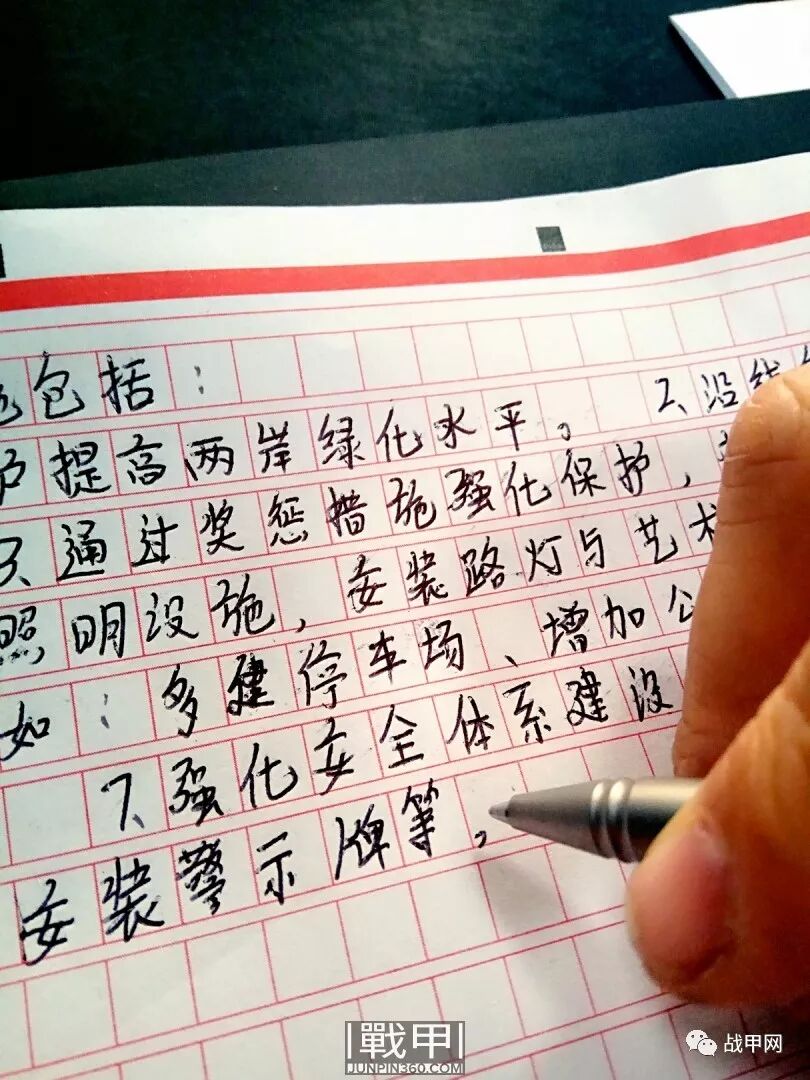 包括：
护提高两岸绿化水平。 2、沿线
3、通过奖惩措施强化保护，
照明设施，安装路灯与艺术
如：多建停车场、增加公
7、强化安全体系建设
安装警示牌等，
戰甲
JUNPIN360.COM
战甲网